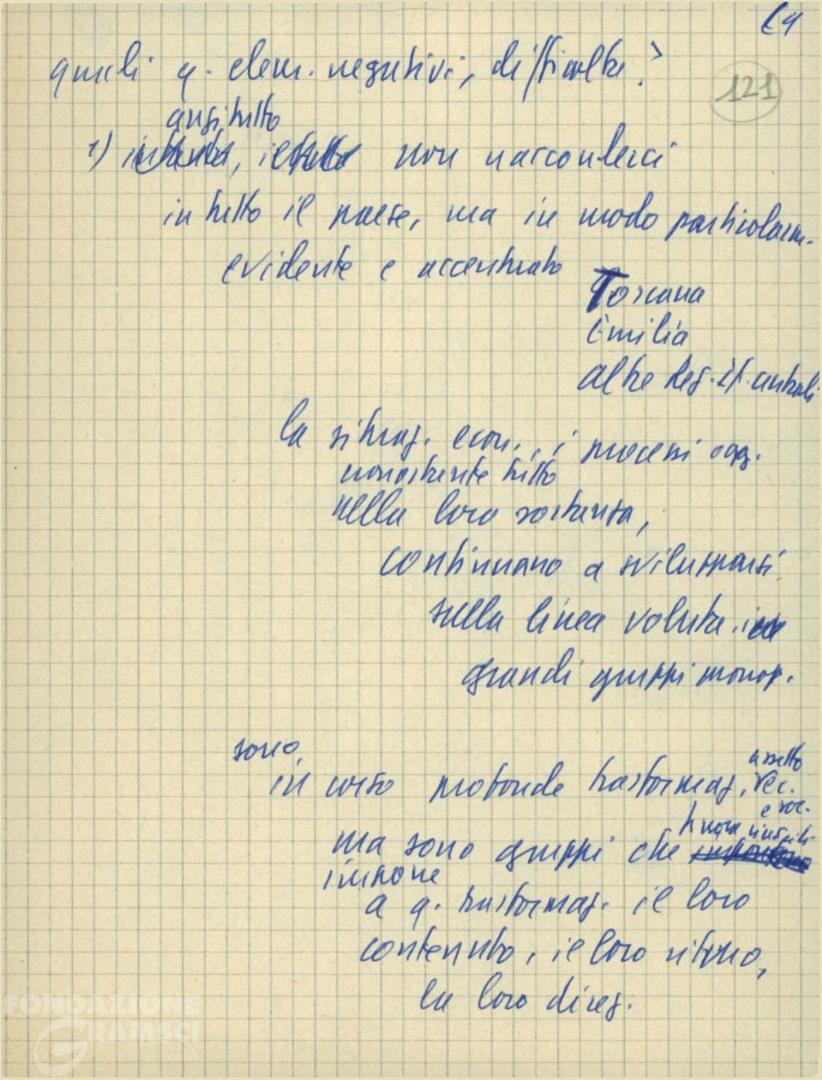 64
121
quali q. elem. negativi, difficoltà?
anzitutto
1) non nasconderci
in tutto il paese, ma in modo particolarm.
evidente e accentuato
Toscana
Emilia
altre Reg. It. centrali
la situaz. econ., i processi ogg.
nonostante tutto
nella loro sostanza,
continuano a svilupparsi
sulla linea voluta
grandi gruppi monop.
sono
in corso profonde trasformaz. assetto
ec.
e soc.
ma sono gruppi che finora riusciti
imporre
a q. trasformaz. il loro
contenuto, il loro ritmo,
la loro direz.
FONDAZIONE
GRAMSCI